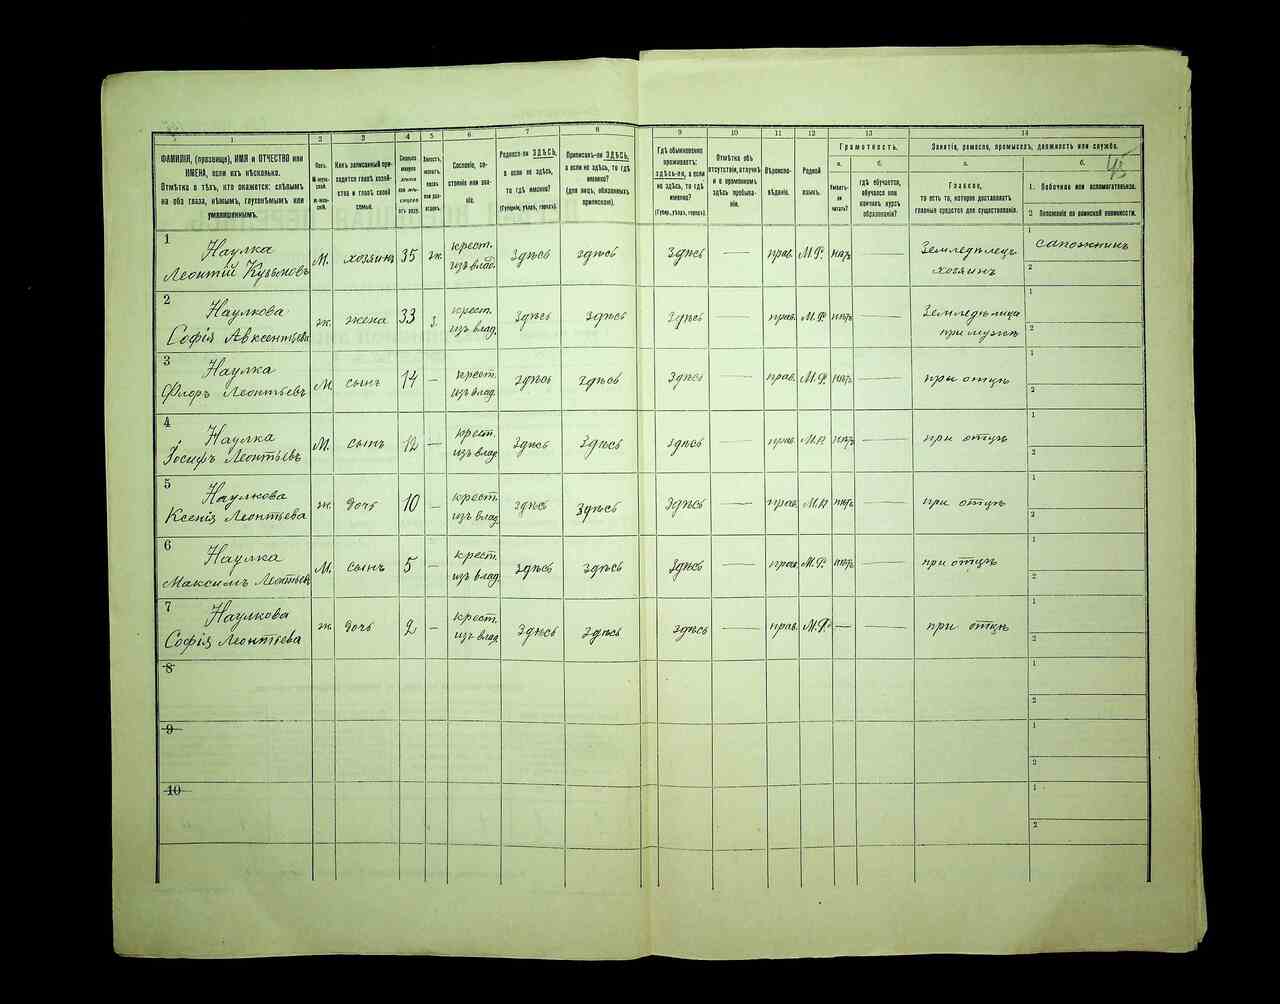 45
1
2
3
4
5
6
7
8
9
10
11
12
13
14
ФАМИЛІЯ, (прозвище), ИМЯ и ОТЧЕСТВО или
ИМЕНА, если ихъ нѣсколько.
Отмѣтка о тѣхъ, кто окажется: слѣпымъ
на оба глаза, нѣмымъ, глухонѣмымъ или
умалишеннымъ.
Полъ.
М-мужской.
Ж-женскій.
Какъ записанный при-
ходится главѣ хозяй-
ства и главѣ своей
семьи.
Сословіе, со-
стояніе или зва-
ніе.
Родился-ли ЗДѢСЬ,
а если не здѣсь,
то гдѣ именно?
(Губернія, уѣздъ, городъ).
Приписанъ-ли ЗДѢСЬ,
а если не здѣсь, то гдѣ
именно?
(для лицъ, обязанныхъ
припискою).
Гдѣ обыкновенно
проживаетъ:
здѣсь-ли, а если
не здѣсь, то гдѣ
именно?
(Губер., уѣздъ, городъ).
Отмѣтка объ
отсутствіи, отлучкѣ
и о временномъ
здѣсь пребыва-
ніи.
Вѣроиспо-
вѣданіе.
Родной
языкъ.
Грамотность.
а.
Умѣетъ-
ли
читать?
б.
гдѣ обучается,
обучался или
кончилъ курсъ
образованія?
Занятіе, ремесло, промыселъ, должность или служба.
а.
Главное,
то есть то, которое доставляетъ
главныя средства для существованія.
б.
1. Побочное или вспомогательное.
2 Положеніе по воинской повинности.
1
Наулка
Леонтій Кузьмовъ
М.
хозяинъ
35
ж.
крест.
изъ влад.
здѣсь
здѣсь
здѣсь
—
прав.
М.Р.
—
Земледѣлецъ
хозяинъ
1
сапожникъ
2
2
Наулкова
Софія Авксентьева
ж.
жена
33
з.
крест.
изъ влад.
здѣсь
здѣсь
здѣсь
—
прав.
М.Р.
нѣтъ
—
Земледѣлица
при мужѣ
1
2
3
Наулка
Флоръ Леонтьевъ
М.
сынъ
14
—
крест.
изъ влад.
здѣсь
здѣсь
здѣсь
—
прав.
М.Р.
нѣтъ
—
при отцѣ
1
2
4
Наулка
Іосифъ Леонтьевъ
М.
сынъ
12
—
крест.
изъ влад.
здѣсь
здѣсь
здѣсь
—
прав.
М.Р.
нѣтъ
—
при отцѣ
1
2
5
Наулкова
Ксенія Леонтьева
ж.
дочь
10
—
крест.
изъ влад.
здѣсь
здѣсь
здѣсь
—
прав.
М.Р.
нѣтъ
—
при отцѣ
1
2
6
Наулка
Максимъ Леонтьевъ
М.
сынъ
5
—
крест.
изъ влад.
здѣсь
здѣсь
здѣсь
—
прав.
М.Р.
нѣтъ
—
при отцѣ
1
2
7
Наулкова
Софія Леонтьева
ж.
дочь
2
—
крест.
изъ влад.
здѣсь
здѣсь
здѣсь
—
прав.
М.Р.
—
—
при отцѣ
1
2
8
1
2
9
1
2
10
1
2